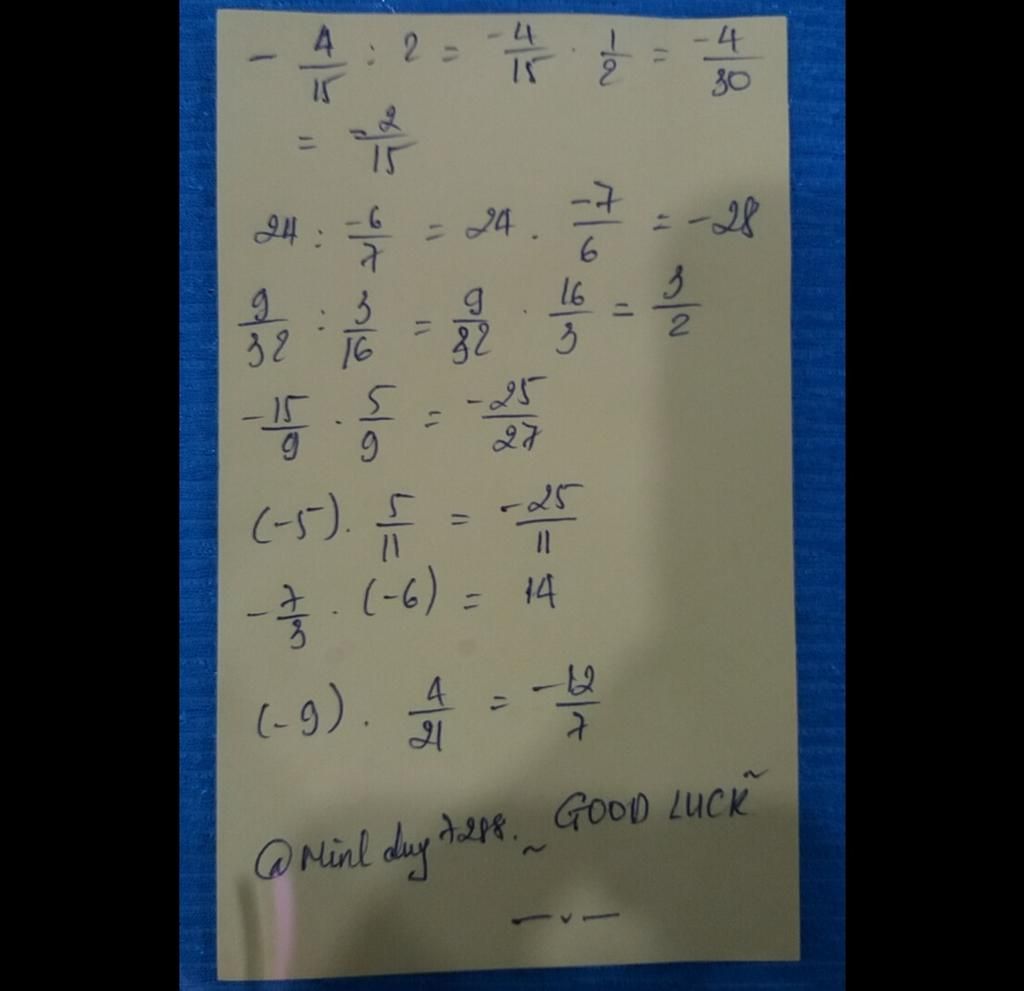 - 4/15 : 2 = -4/15 . 1/2 = -4/30
= -2/15
24 : -6/7 = 24 . -7/6 = -28
9/32 : 3/16 = 9/32 . 16/3 = 3/2
-15/9 . 5/9 = -25/27
(-5) . 5/11 = -25/11
-7/3 . (-6) = 14
(-9) . 4/21 = -12/7
~ GOOD LUCK ~